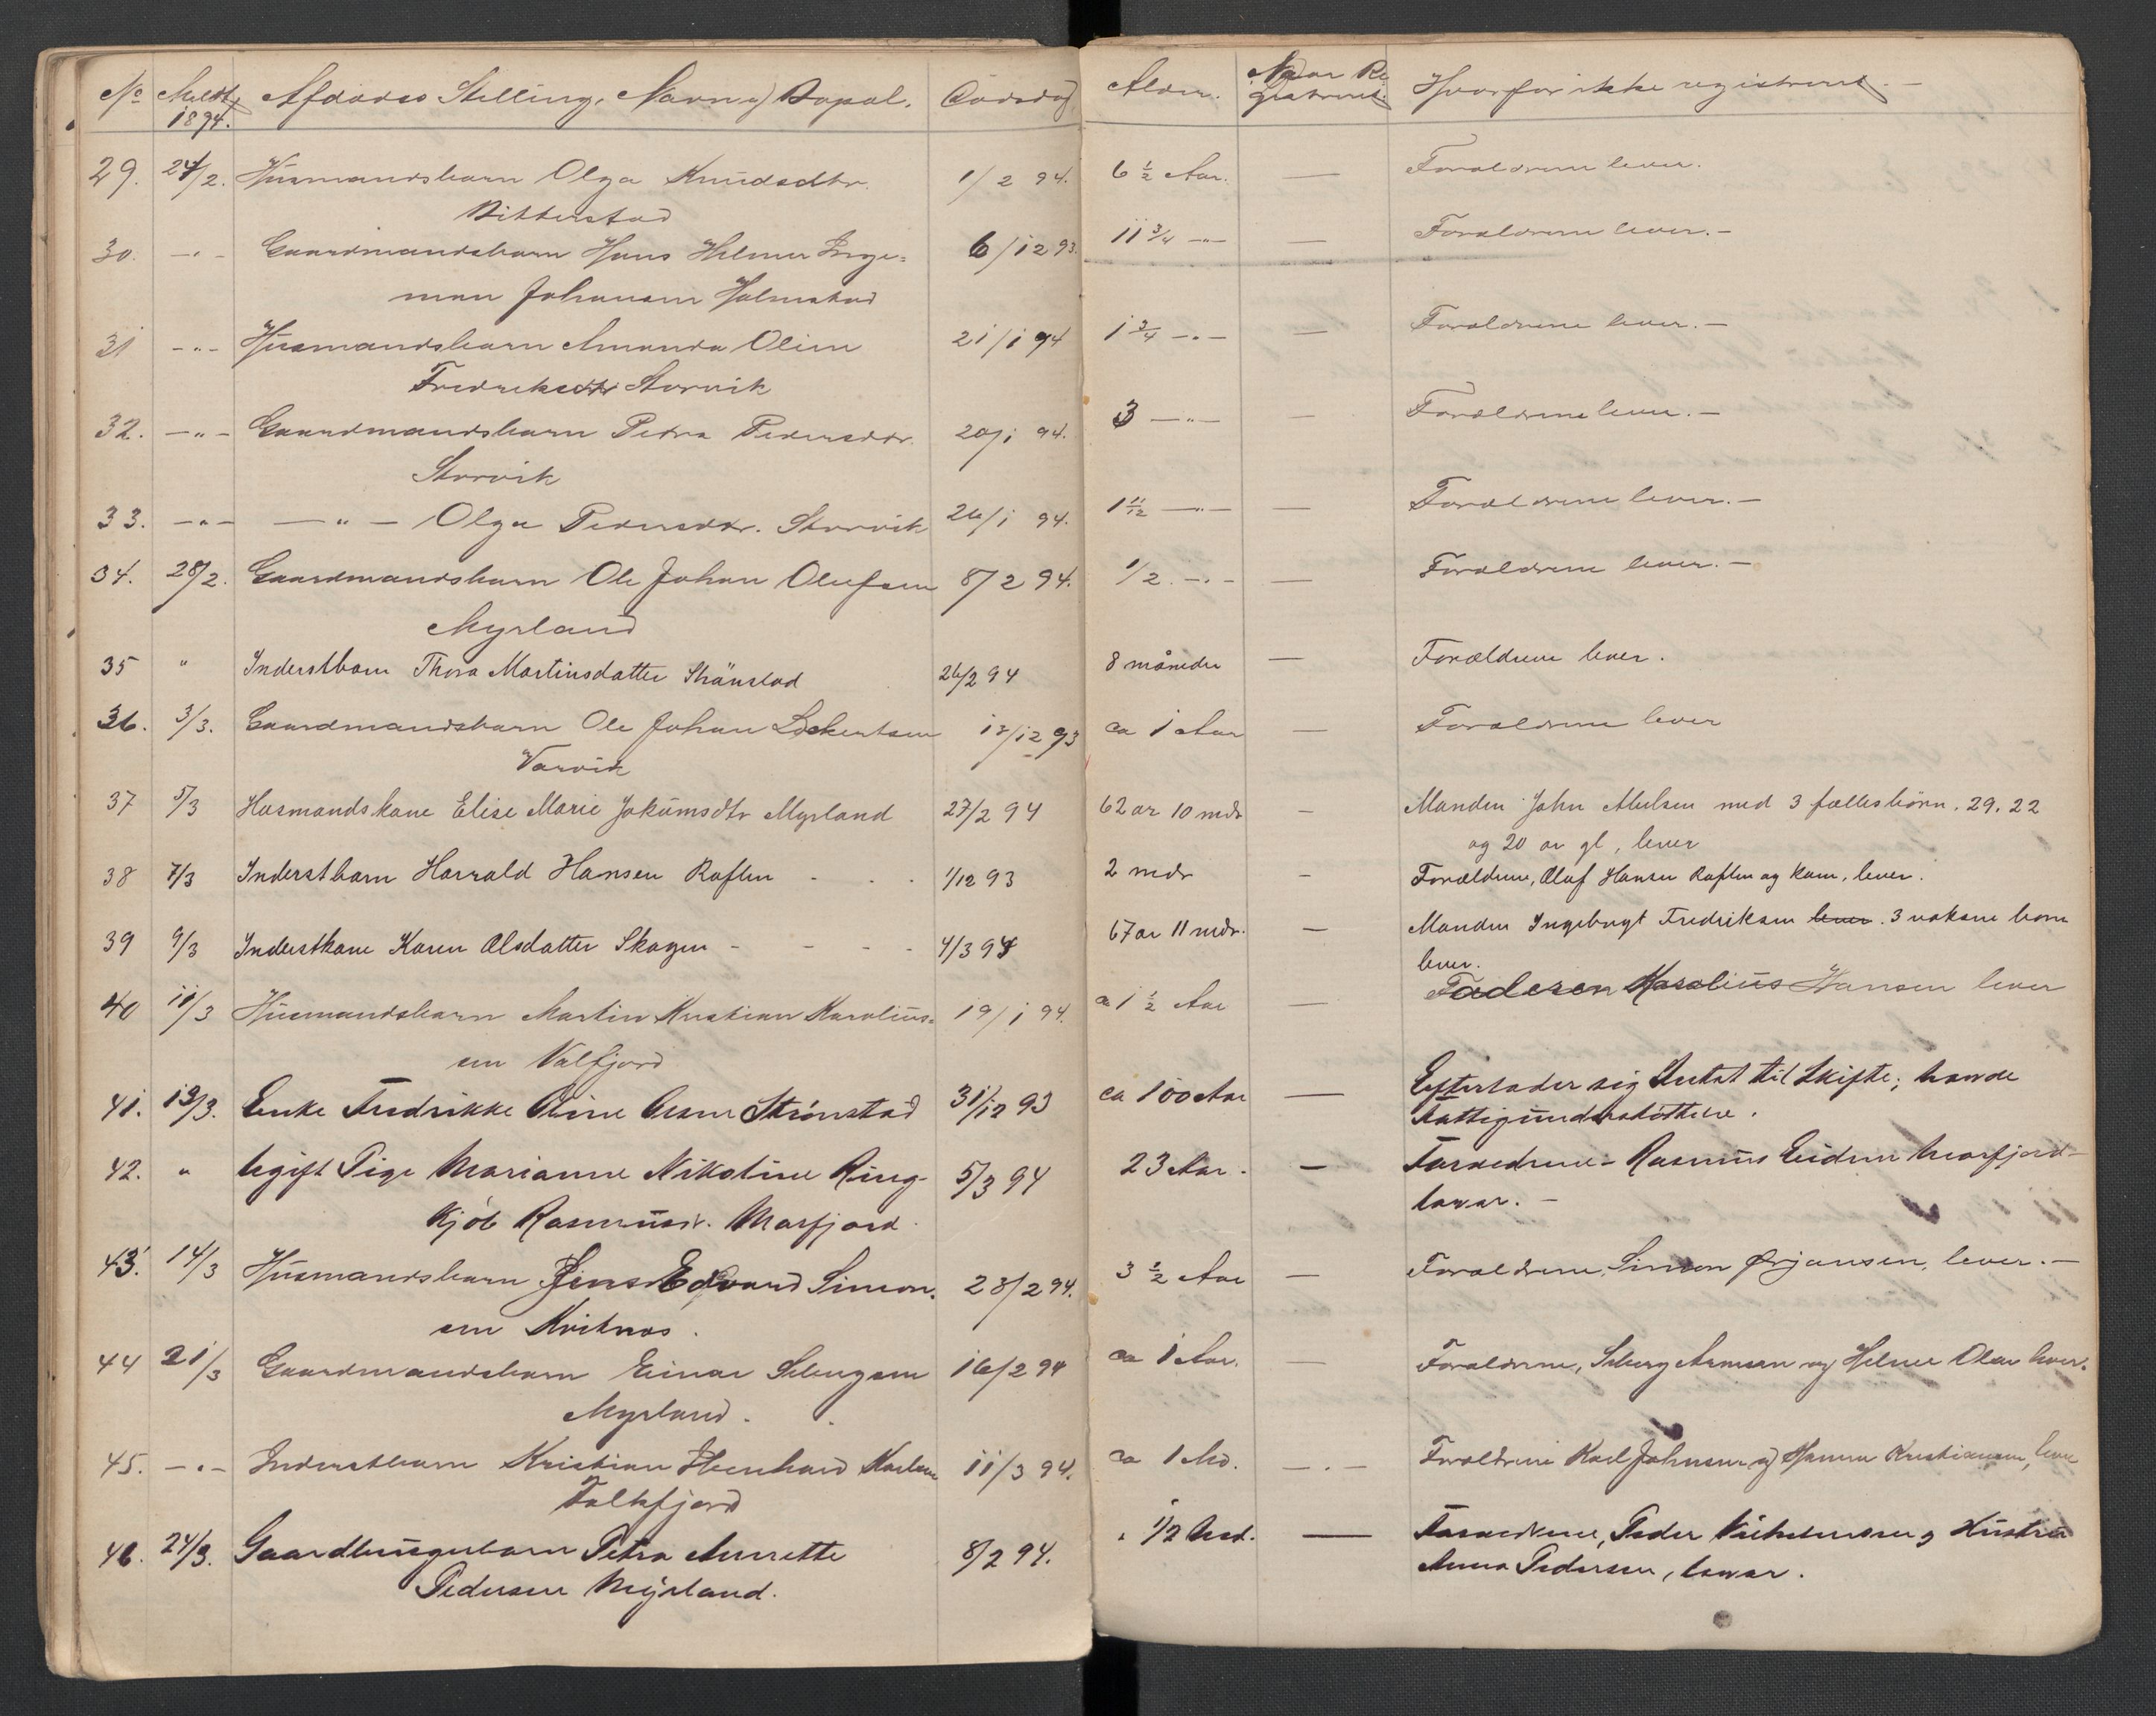 No Meldt 1894. Afdødes Stilling, Navn og Bopæl. Dødsdag Alder. Naar Registreret. Hvorfor ikke registreret. —
29. 24/2. Husmandsbarn Olga Knudsdtr. 1/2 94. 6 1/2 Aar. — Forældrene lever.
Bitterstad
30. —"— Gaardmandsbarn Hans Hilmer Inge= 6/12 93. 11 3/4 —"— — Forældrene lever. —
man Johansen Holmstad
31 —"— Husmandsbarn Amanda Oline 21/1 94 1 3/4 —"— — Forældrene lever. —
Fredriksdtr Storvik
32. —"— Gaardmandsbarn Petra Pedersdtr. 20/1 94. 3 —"— — Forældrene lever. —
Storvik
33. —"— —"— Olga Pedersdtr. Storvik 26/1 94. 1 11/12 —"— — Forældrene lever. —
34. 28/2. Gaardmandsbarn Ole Johan Olufsen 8/2 94. 1/2. —"— — Forældrene lever. —
Myrland
35 " Inderstbarn Thora Martinsdatter Strönstad 26/2 94 8 måneder — Forældrene lever.
36. 3/3. Gaardmandsbarn Ole Johan Lockertsen 12/12 93 ca 1 Aar — Forældrene lever
Varvik
37 5/3 Husmandskone Elise Marie Jakumsdtr Myrland 27/2 94 62 ar 10 mdr — Manden John Abelsen med 3 fællesbörn. 29. 22
og 20 ar gl, lever
38 7/3 Inderstbarn Harrald Hansen Raften - - - 1/12 93 2 mdr - Forældrene, Oluf Hansen Raften og Kone, lever.
39 9/3 Inderstkone Karen Olsdatter Skagen - - - - 4/3 94 67 ar 11 mdr. — Manden Ingebrigt Fredriksen lever. 3 voksne born
lever.
40 11/3 Husmandsbarn Martin Kristian Karolius= 19/1 94. ca 1 1/2 Aar — Faderen Karolius Hansen lever
sen Valfjord
41. 13/3. Enke Fredrikke Oline Strönstad 31/12 93 ca 100 Aar — Efterlader sig Intet til Skifte; havde
Fattigunderstöttelse.
42. " Ugift Pige Marianne Nikoline Ring- 5/3 94 23 Aar. — Foreldrene - Rasmus Eidum Morfjord -
kjöb Rasmusdr. Morfjord. lever. —
43. 14/3 Husmandsbarn Jens Edvard Simon. 23/2 94. 3 1/2 Aar — Forældrene, Simon Ørjansen, lever. —
sen Kvitnes.
44 21/3 Gaardmandsbarn Einar Seбergsen 16/2 94 ca 1 Aar. — Forældrene, og Helmer Olea lever.
Myrland.
45. —"— Inderstbarn Kristian Karlsen 11/3 94. ca 1 Md. —.— Forældrene Karl Johnsen og Hanna Kristiansen, lever
Falkfjord
46. 24/3. Gaardbrugerbarn Petra Annette 8/2 94. " 1/2 Mnd. — Foreldrene, Peder Vilhelmsen og Hustru
Pedersen Myrland. Anna Pedersen, lever.